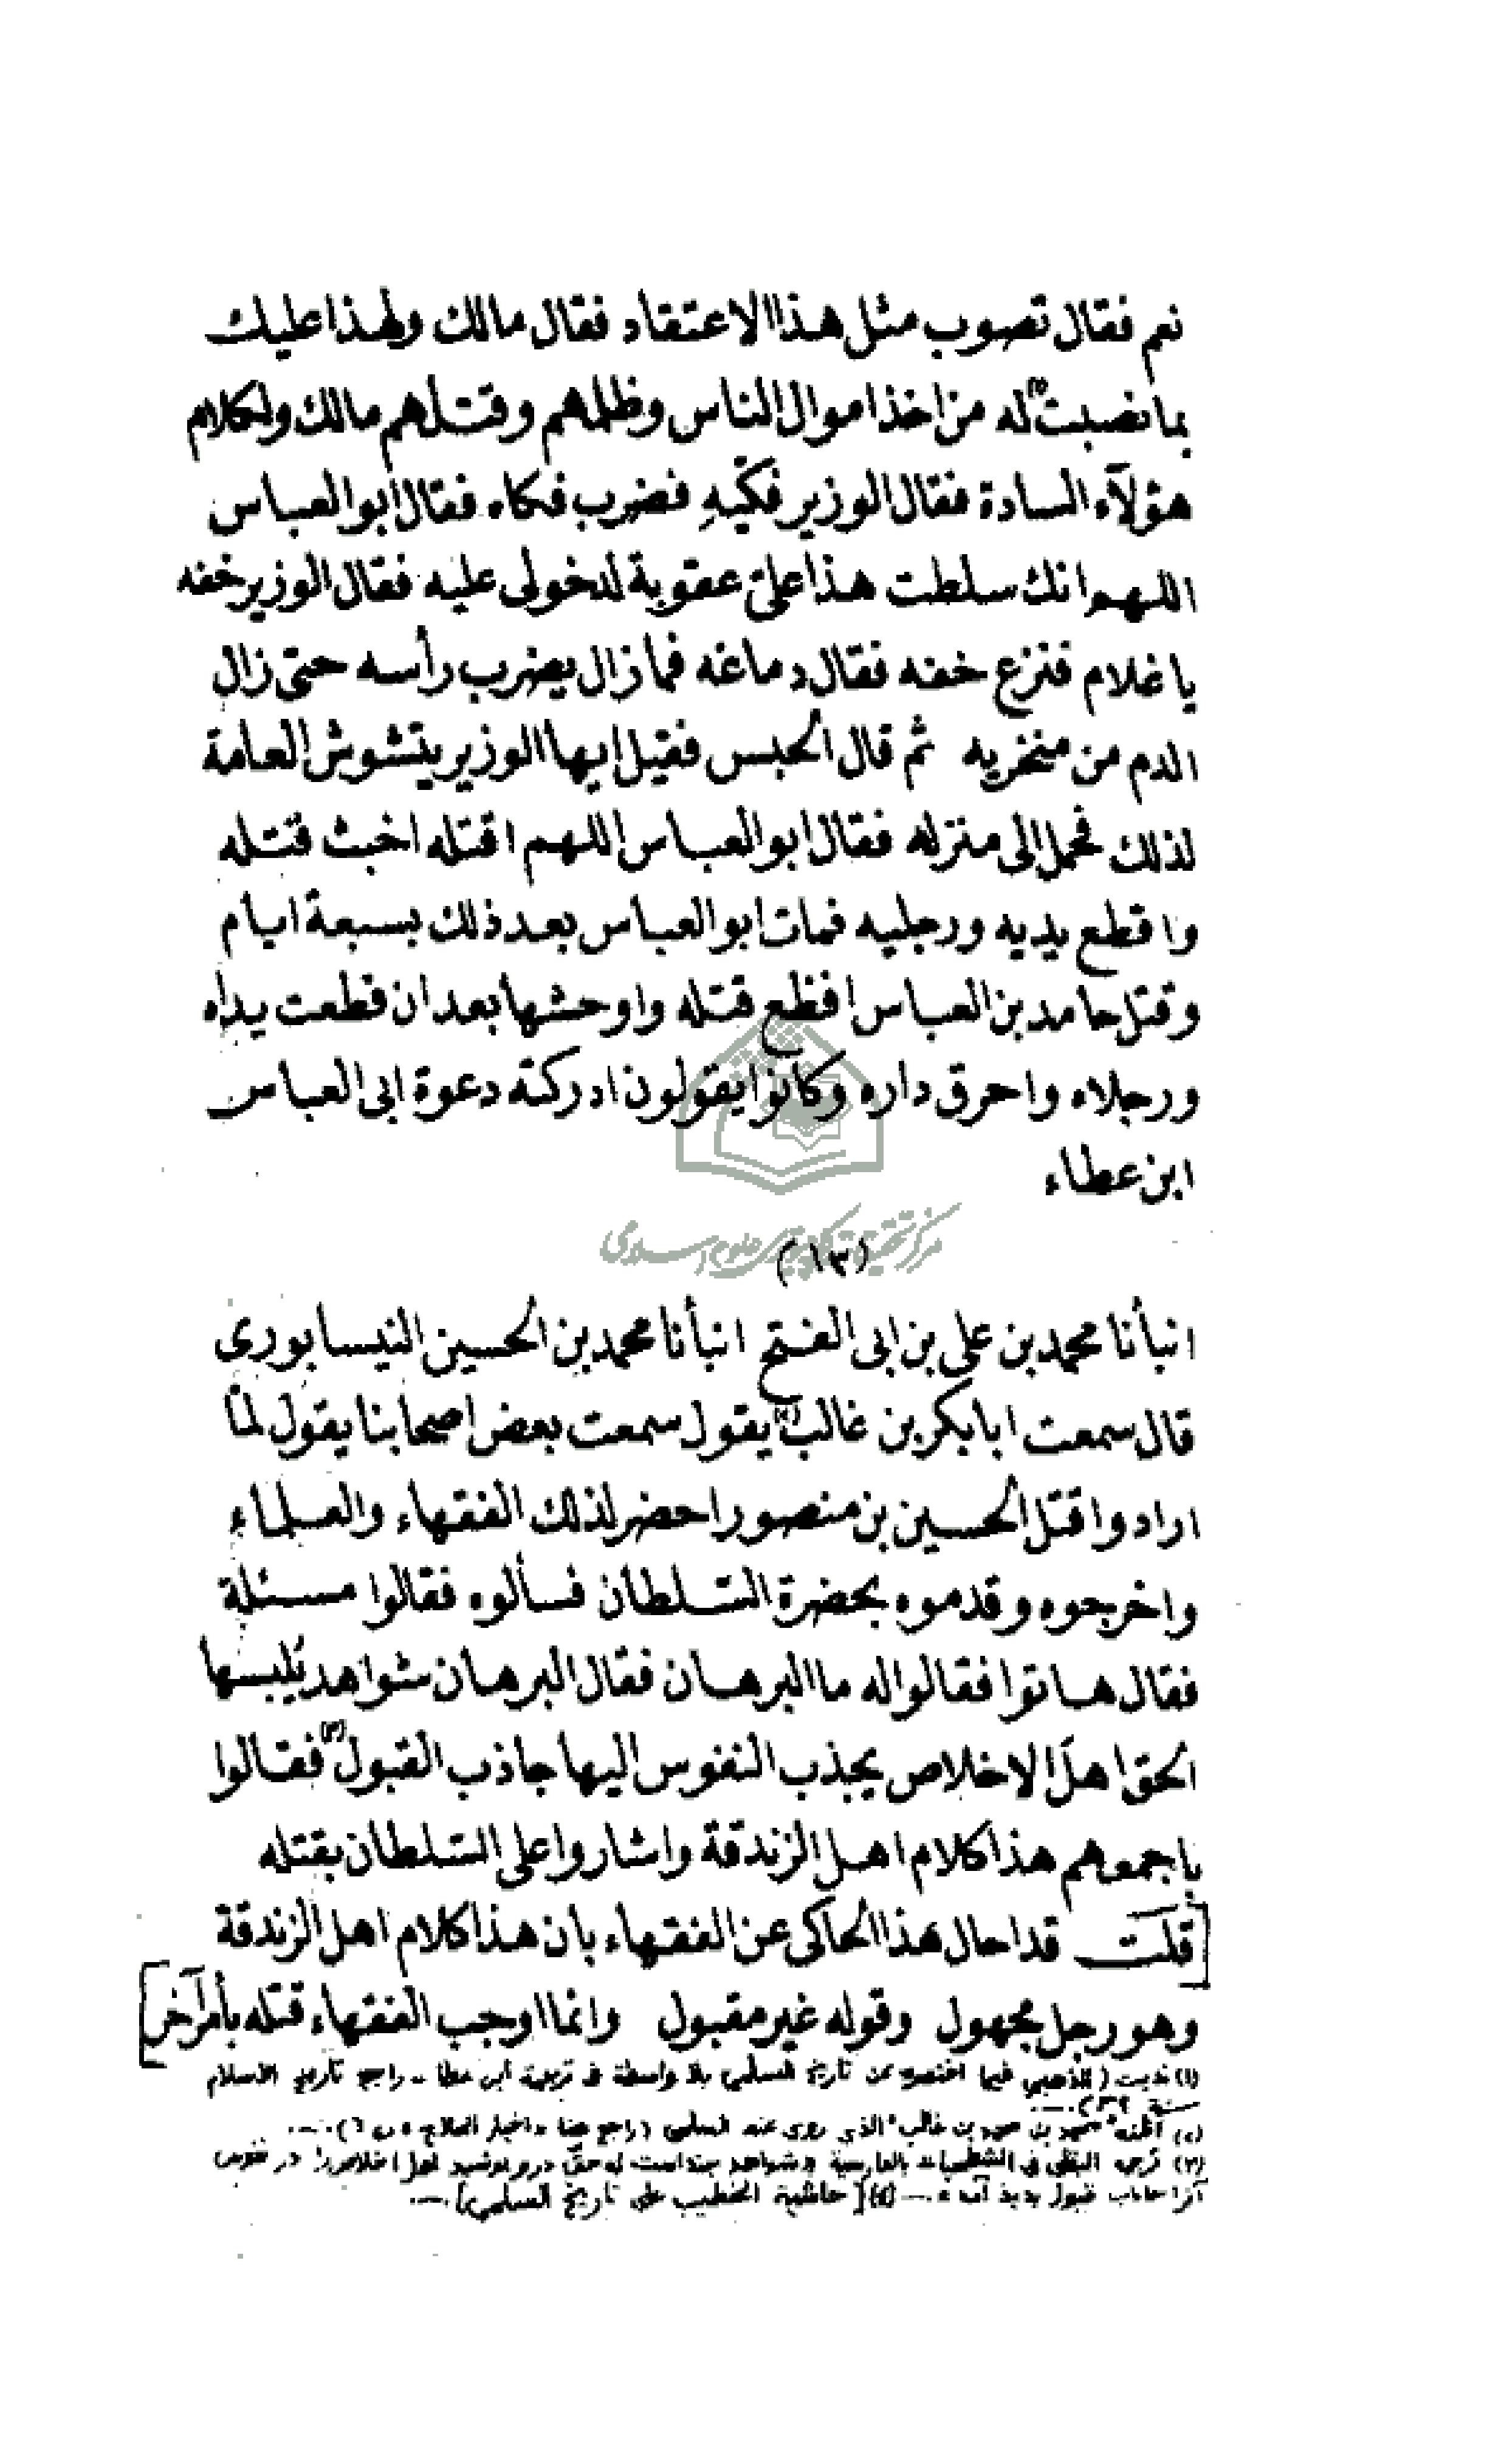 نعم فقال تصوب مثل هذا الاعتقاد فقال مالك ولهذا عليك
بما نصبت(١) له من اخذ اموال الناس وظلمهم وقتلهم مالك ولكلام
هؤلآء السادة فقال الوزير فكّيهِ فضرب فكاه فقال ابو العباس
اللهم انك سلطت هذا علىّ عقوبة لدخولى عليه فقال الوزير خفه
يا غلام فنزع خفه فقال دماغه فما زال يضرب رأسه حتى زال
الدم من منخريه ثم قال الحبس فقيل ايها الوزير يتشوش العامة
لذلك فحمل الى منزله فقال ابو العباس اللهم اقتله اخبث قتله
واقطع يديه ورجليه فمات ابو العباس بعد ذلك بسبعة ايام
وقتل حامد بن العباس افظع قتله واوحشها بعد ان قطعت يداه
ورجلاه واحرق داره وكانوا يقولون ادركته دعوة ابى العباس
ابن عطاء
مركز تحقيقات كامپيوترى علوم اسلامى
(١٣)
انبأنا محمد بن على بن ابى الفتح انبأنا محمد بن الحسين النيسابورى
قال سمعت ابا بكر بن غالب(٢) يقول سمعت بعض اصحابنا يقول لمّا
ارادوا قتل الحسين بن منصور احضر لذلك الفقهاء والعلماء
واخرجوه وقدموه بحضرة السّلطان فسألوه فقالوا مسئلة
فقال هاتوا فقالوا له ما البرهان فقال البرهان شواهد يُلبسها
الحق اهلَ الاخلاص يجذب النفوس اليها جاذب القبول(٣) فقالوا
باجمعهم هذا كلام اهل الزندقة واشاروا على السّلطان بقتله
[قلت قد احال هذا الحاكى عن الفقهاء بان هذا كلام اهل الزندقة
وهو رجل مجهول وقوله غير مقبول وانما اوجب الفقهاء قتله بأمر آخر]
(١) الذهبي فيما اختصره من تاريخ السلمي بلا واسطة فى ترجمة ابن عطا ـ راجع تاريخ الاسلام
سنة
(٢) اظنه "محمد بن محمد بن غالب" الذى روى عنه السلمى (راجع هنا
(٣) ترجمه البقلى فى الشطحيات بالفارسية شواهد چند است كه حقّ درو پوشيد اهل اخلاص را در نفوس
آنرا جاذب قبول ـ (٤) [حاشية الخطيب على تاريخ السلمى]